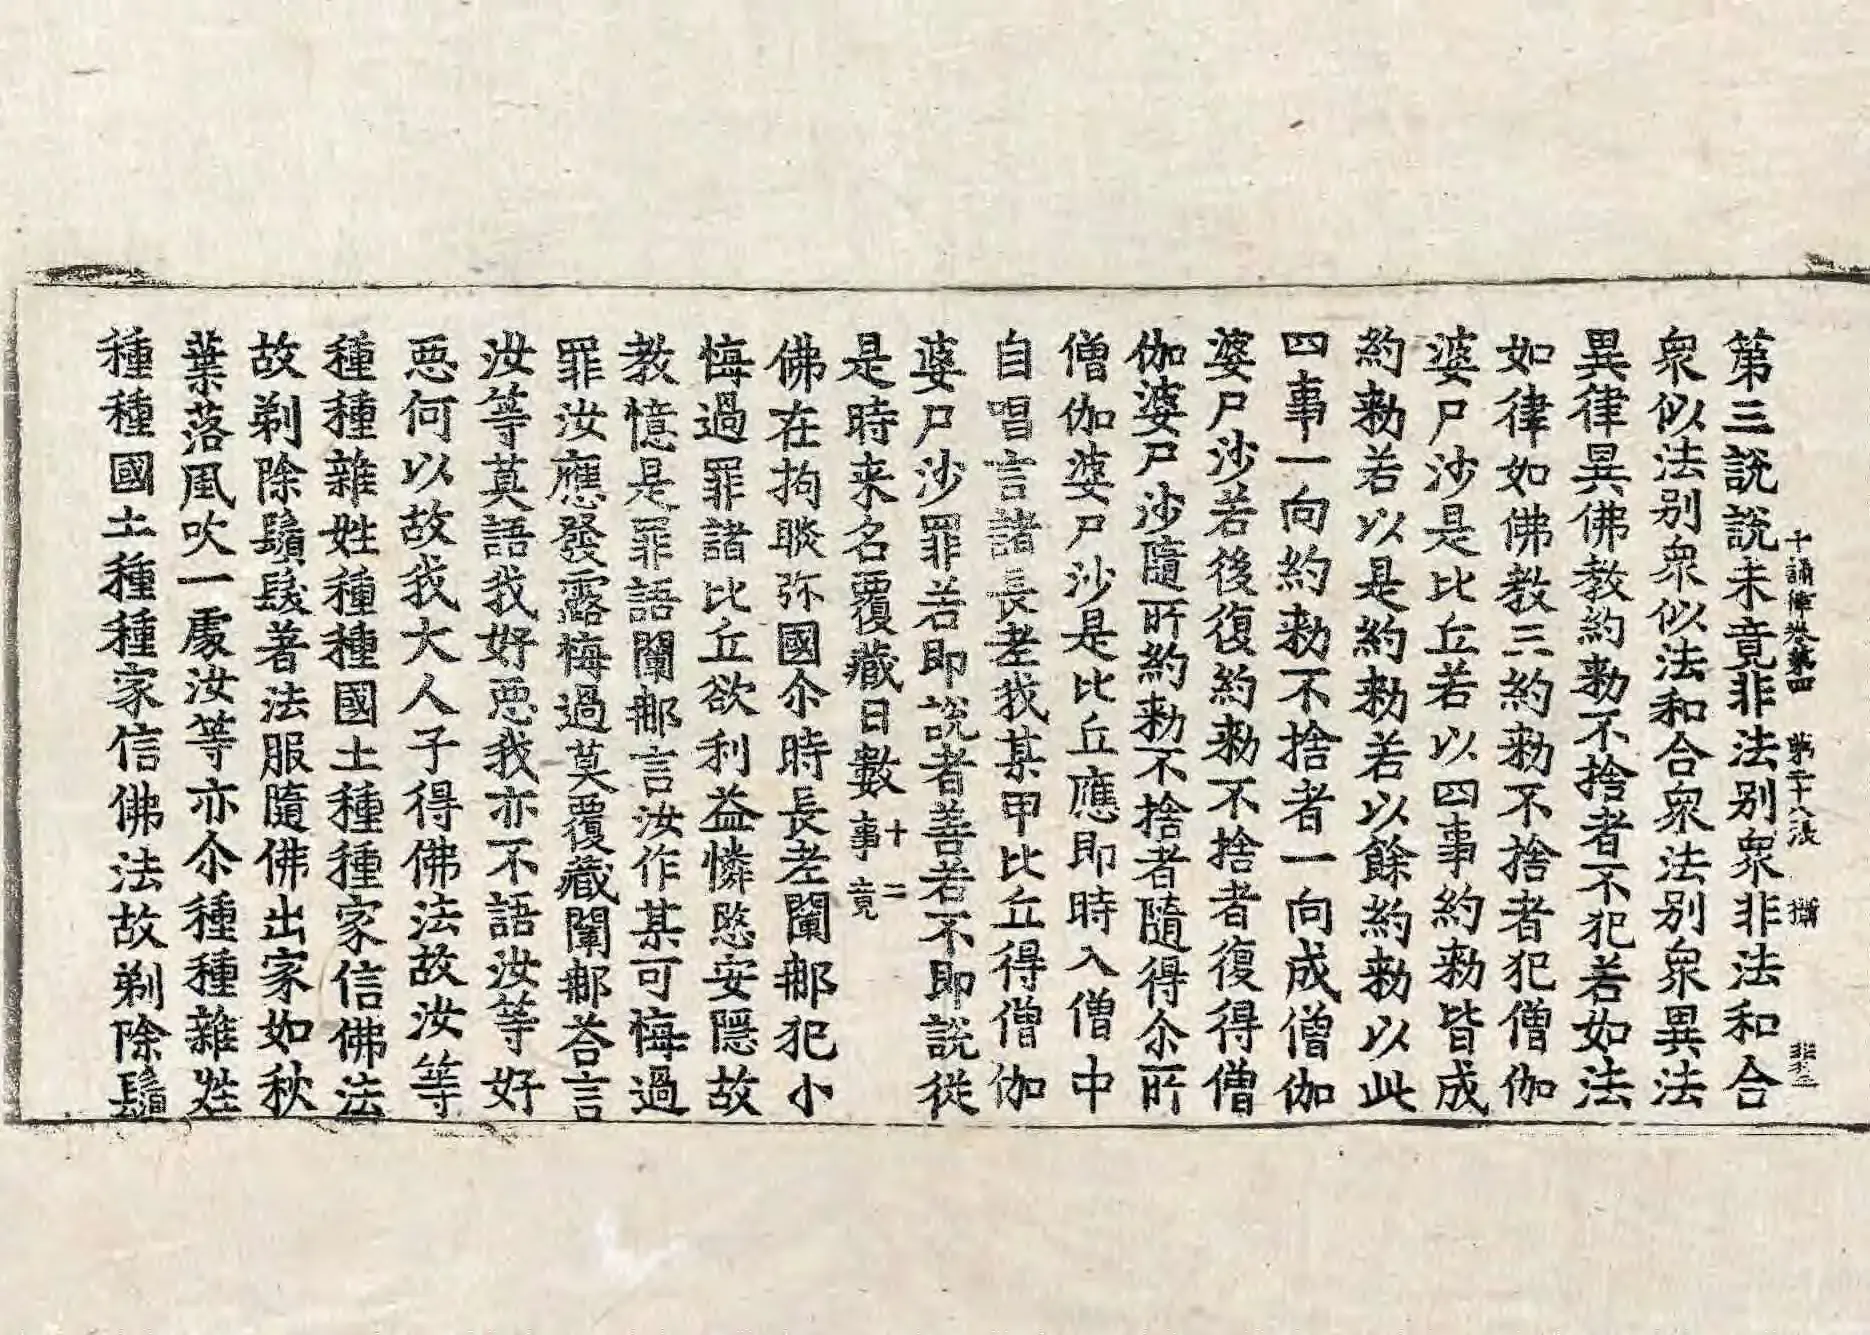 十誦律卷第四　第二十八張
第三說說未竟非法別衆非法和合
衆似法別衆似法和合衆法別衆異法
異律異佛教約勑不捨者不犯若如法
如律如佛教三約勑不捨者犯僧伽
婆尸沙是比丘若以四事約勑皆成
約勑若以是約勑若以餘約勑以此
四事一向約勑不捨者一向成僧伽
婆尸沙若後復約勑不捨者復得僧
伽婆尸沙隨所約勑不捨者隨得尒所
僧伽婆尸沙是比丘應即時入僧中
自唱言諸長老我某甲比丘得僧伽
婆尸沙罪若即說者善若不即說從
是時来名覆藏日數十二事竟
佛在拘睒弥國尒時長老闡那犯小
悔過罪諸比丘欲利益憐愍安隱故
教憶是罪語闡那言汝作某可悔過
罪汝應發露悔過莫覆藏闡那荅言
汝等莫語我好惡我亦不語汝等好
惡何以故我大人子得佛法故汝等
種種雜姓種種國土種種家信佛法
故剃除鬚髮著法服隨佛出家如秋
葉落風吹一處汝等亦尒種種雜姓
種種國土種種家信佛法故剃除鬚